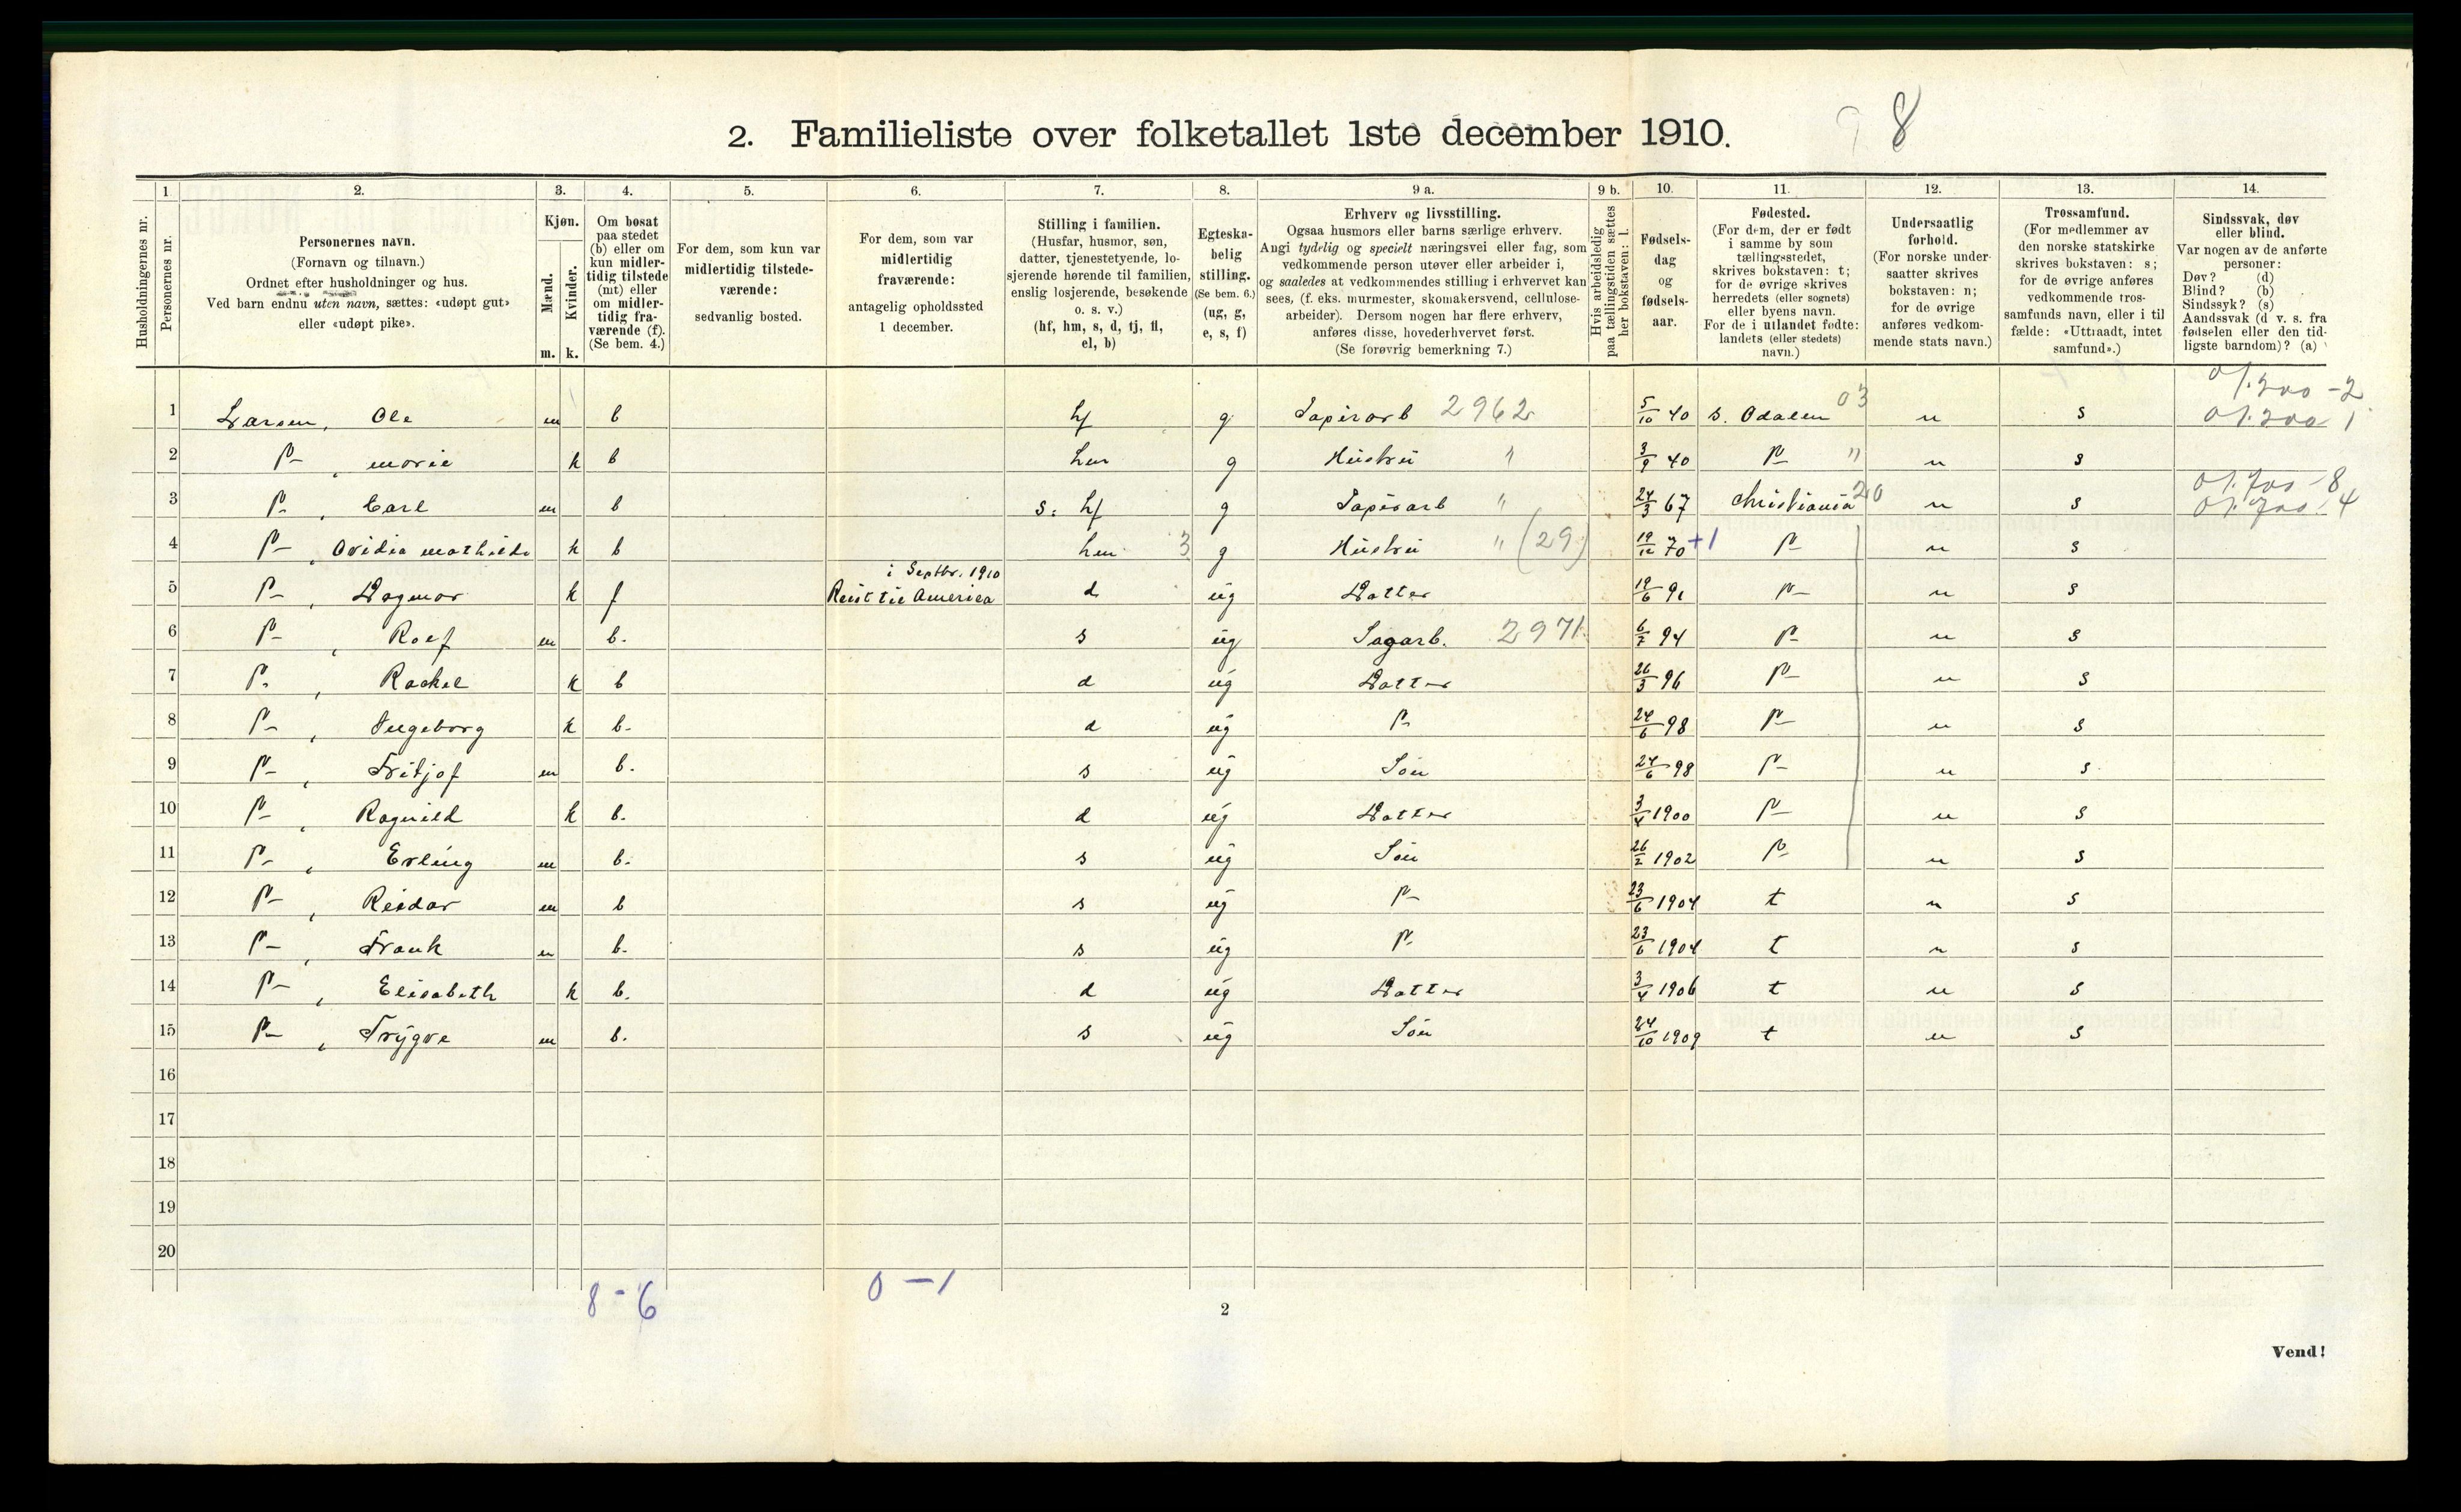 2. Familieliste over folketallet 1ste december 1910.
8
1. 2. 3. 4. 5. 6. 7. 8. 9 a. 9 b. 10. 11. 12. 13. 14.
Husholdningernes nr.
Personernes nr.
Personernes navn.
(Fornavn og tilnavn.)
Ordnet efter husholdninger og hus.
Ved barn endnu uten navn, sættes: «udøpt gut»
eller «udøpt pike».
Kjøn.
Mænd.
Kvinder.
m. k.
Om bosat
paa stedet
(b) eller om
kun midler-
tidig tilstede
(mt) eller
om midler-
tidig fra-
værende (f).
(Se bem. 4.)
For dem, som kun var
midlertidig tilstede-
værende:
sedvanlig bosted.
For dem, som var
midlertidig
fraværende:
antagelig opholdssted
1 december.
Stilling i familien.
(Husfar, husmor, søn,
datter, tjenestetyende, lo-
sjerende hørende til familien,
enslig losjerende, besøkende
o. s. v.)
(hf, hm, s, d, tj, fl,
el, b)
Egteska-
belig
stilling.
(Se bem. 6.)
(ug, g,
e, s, f)
Erhverv og livsstilling.
Ogsaa husmors eller barns særlige erhverv.
Angi tydelig og specielt næringsvei eller fag, som
vedkommende person utøver eller arbeider i,
og saaledes at vedkommendes stilling i erhvervet kan
sees, (f. eks. murmester, skomakersvend, cellulose-
arbeider). Dersom nogen har flere erhverv,
anføres disse, hovederhvervet først.
(Se forøvrig bemerkning 7.)
Hvis arbeidsledig
paa tællingstiden sættes
her bokstaven: l.
Fødsels-
dag
og
fødsels-
aar.
Fødested.
(For dem, der er født
i samme by som
tællingsstedet,
skrives bokstaven: t;
for de øvrige skrives
herredets (eller sognets)
eller byens navn.
For de i utlandet fødte:
landets (eller stedets)
navn.)
Undersaatlig
forhold.
(For norske under-
saatter skrives
bokstaven: n;
for de øvrige
anføres vedkom-
mende stats navn.)
Trossamfund.
(For medlemmer av
den norske statskirke
skrives bokstaven: s;
for de øvrige anføres
vedkommende tros-
samfunds navn, eller i til
fælde: «Uttraadt, intet
samfund».)
Sindssvak, døv
eller blind.
Var nogen av de anførte
personer:
Døv? (d)
Blind? (b)
Sindssyk? (s)
Aandssvak (d v. s. fra
fødselen eller den tid-
ligste barndom)? (a)
1 Larsen, Ole m b hf g Papirarb 2962 5/10 40 S. Odalen 03 n s
2 D-, Marie k b hm g Hustru " 3/9 40 D- " n s
3 D-, Carl m b s: hf g Papirarb " 24/3 67 Christiania 20 n s
4 D-, Ovidia Mathilde k b hm 3 g Hustru " (29) 19/12 70 +1 D- n s
i Septbr. 1910
5 D-, Dagmar k f Reist til America d ug Datter 19/6 91 D- n s
6 D-, Rolf m b. s ug Sagarb. 2971 6/7 94 D- n s
7 D-, Rachel k b d ug Datter 26/3 96 D- n s
8 D-, Ingeborg k b. d ug D- 24/6 98 D- n s
9 D-, Fritjof m b. s ug Søn 24/6 98 D- n s
10 D-, Ragnild k b. d ug Datter 3/4 1900 D- n s
11 D-, Erling m b. s ug Søn 26/2 1902 D- n s
12 D-, Reidar m b s ug D- 23/6 1904 t n s
13 D-, Frank m b. s ug D- 23/6 1904 t n s
14 D-, Elisabeth k b. d ug Datter 3/4 1906 t n s
15 D-, Trygve m b. s ug Søn 24/10 1909 t n s
16
17
18
19
20
8-6 0-1
2
Vend!